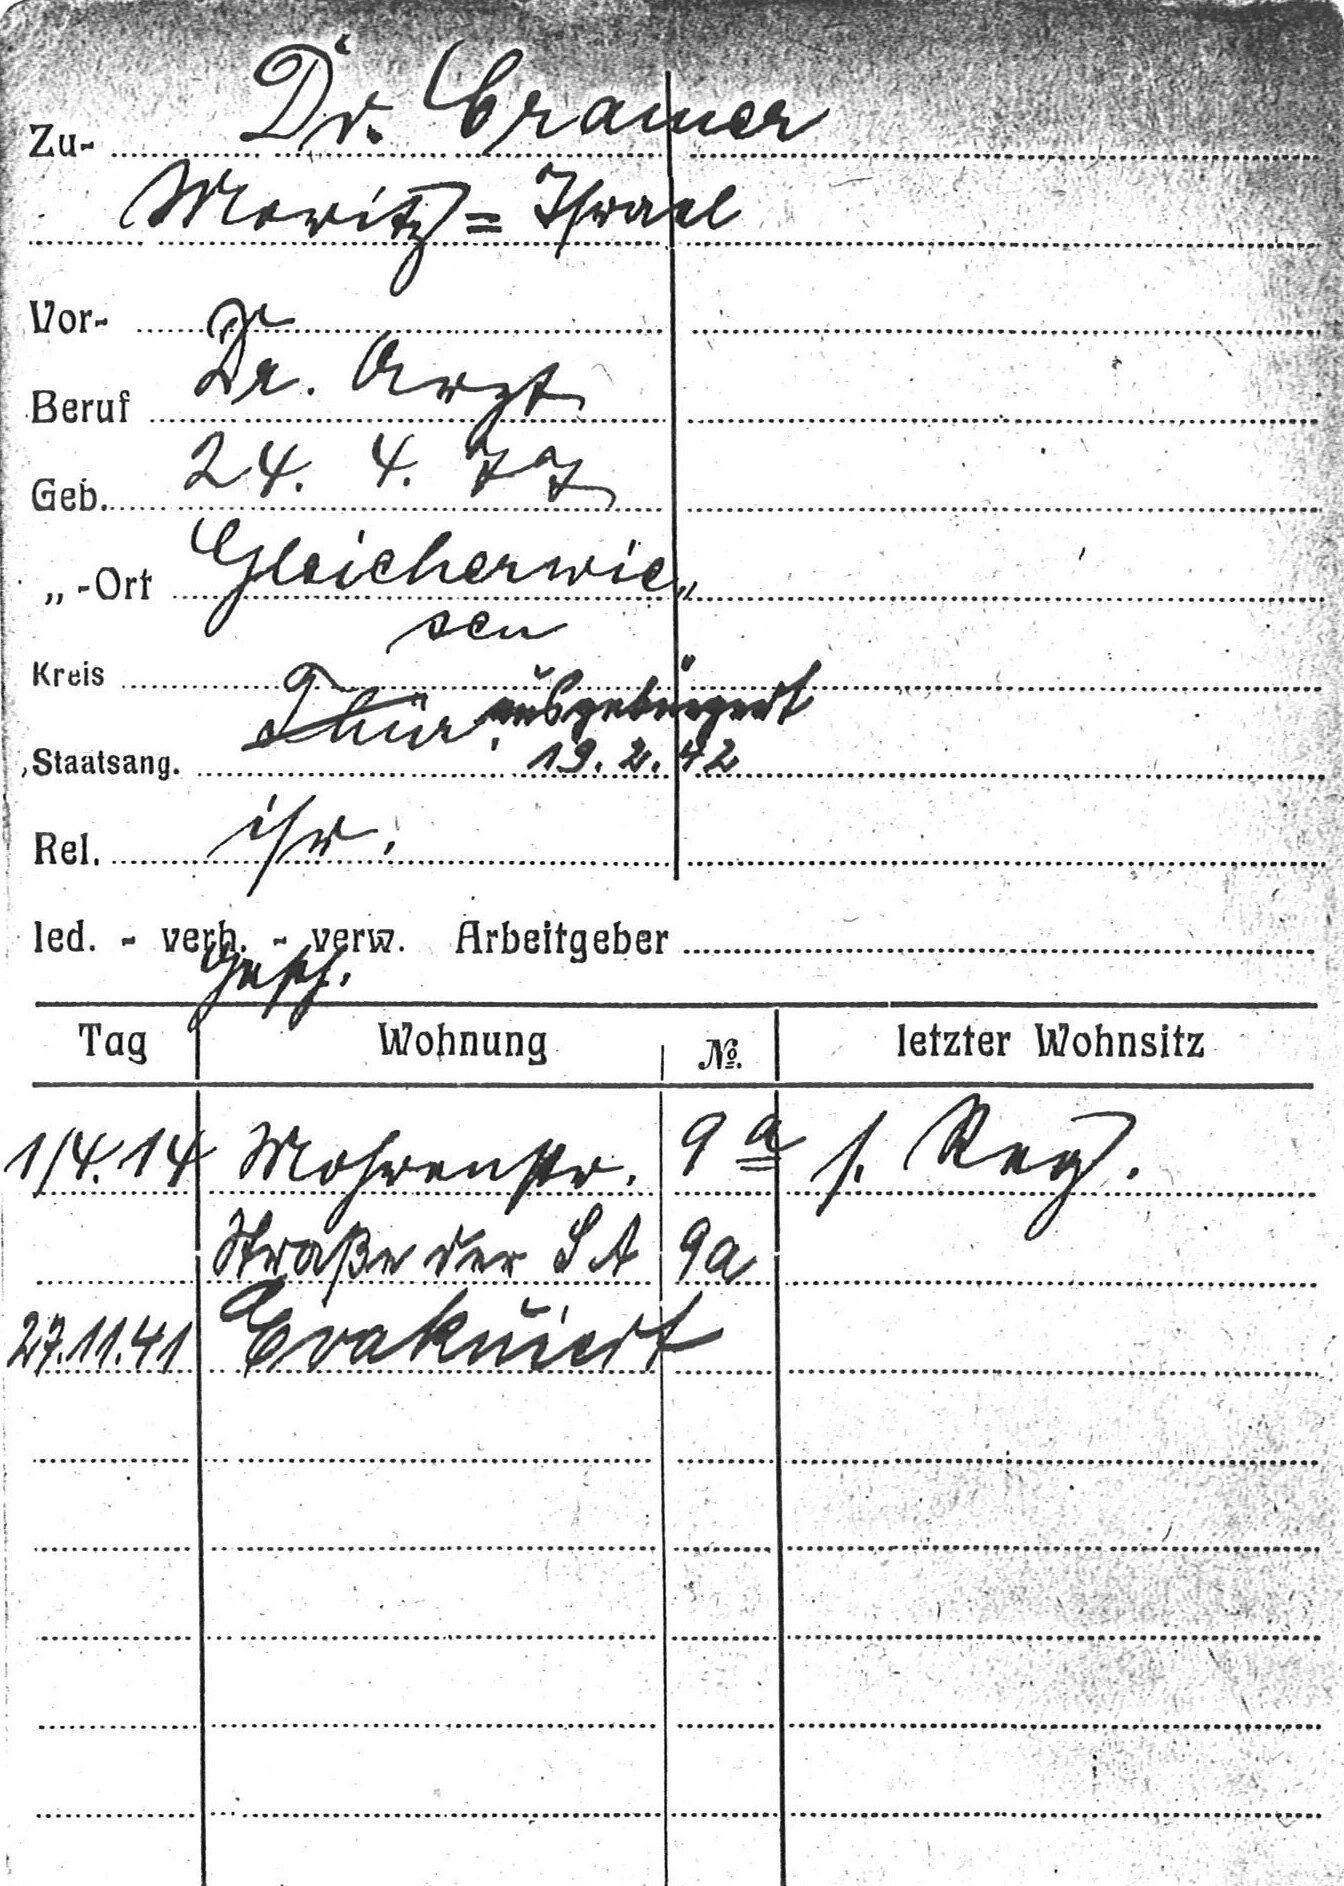 Zu- Dr. Cramer
Moritz = Israel
Vor-
Beruf Dr. Arzt
Geb. 24. 4. 77
„-Ort Gleicherwie„
sen
Kreis
Thür. ausgebürgert
Staatsang. 19. 2. 42
Rel. isr.
led. - verh. - verw. Arbeitgeber
gesch.
Tag Wohnung No. letzter Wohnsitz
1/4. 14 Mohrenstr. 9a s. Reg.
Straße der SA 9a
27.11.41 Evakuiert